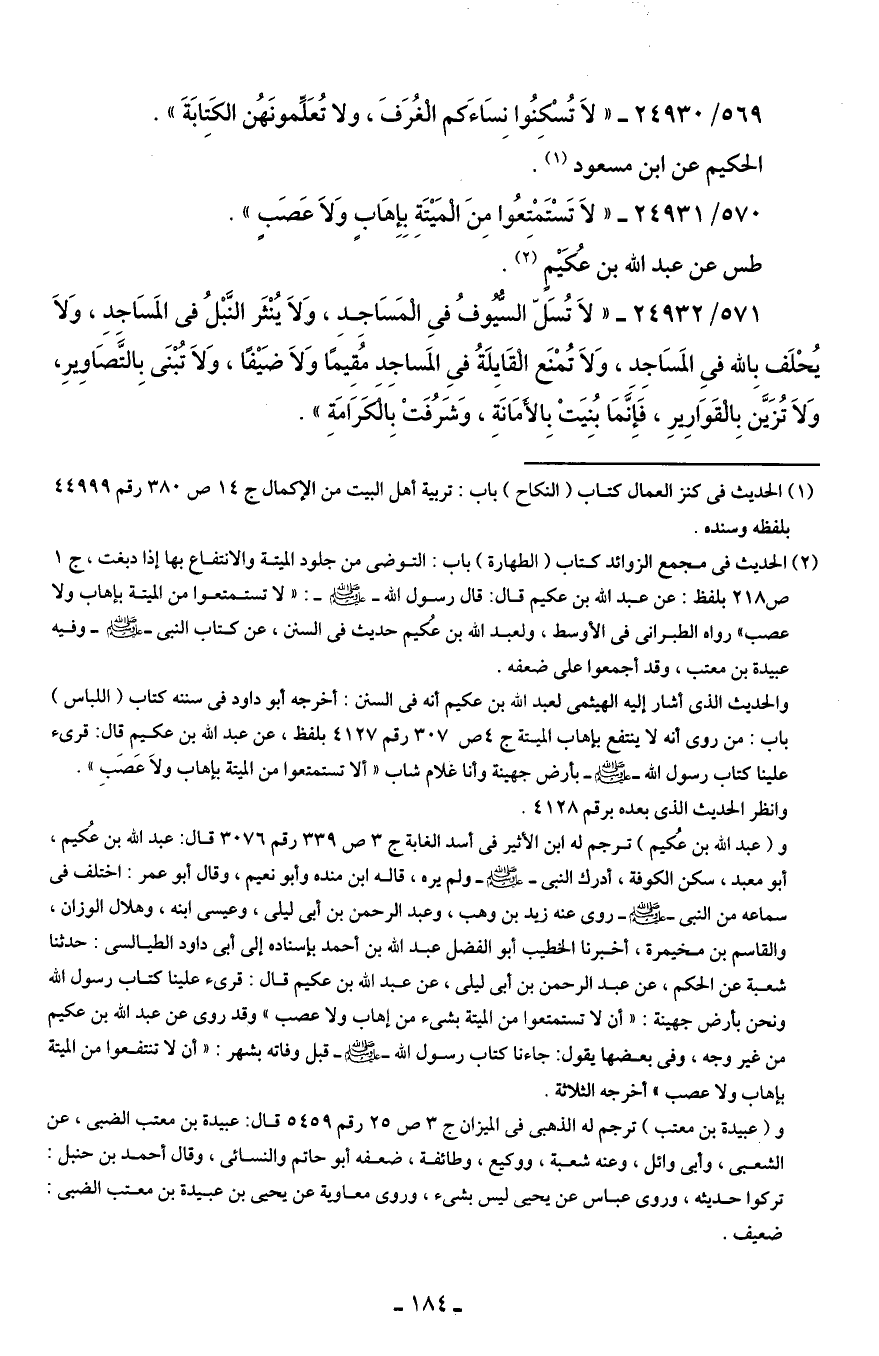 ٥٦٩/ ٢٤٩٣٠ ـ « لاَ تُسْكِنُوا نِسَاءَكم الْغُرَفَ ، ولا تُعَلِّمونَهُن الكَتِابَةَ » .
الحكيم عن ابن مسعود (١) .
٥٧٠/ ٢٤٩٣١ ـ « لاَ تَسْتَمْتِعُوا مِنَ الْمَيْتَةِ بِإِهَابٍ وَلاَ عَصَبٍ » .
طس عن عبد الله بن عُكَيْمٍ (٢) .
٥٧١/ ٢٤٩٣٢ ـ « لاَ تُسَلّ السُّيُوفُ فى الْمَسَاجِدِ ، وَلاَ يُنْثَر النَّبْلُ فى المَسَاجِدِ ، وَلاَ
يُحْلَف بِالله فى المَسَاجِدِ ، وَلاَ تُمْنَع القَايِلَةُ فى المَساجِدِ مُقِيمًا وَلاَ ضَيْفًا ، وَلاَ تُبْنَى بِالتَّصَاوِيرِ،
وَلاَ تُزَيَّن بِالْقَوَارِيرِ ، فَإِنَّمَا بُنِيَتْ بِالأَمَانَةِ ، وَشَرُفَتْ بِالْكَرَامَةِ » .
(١) الحديث فى كنز العمال كتاب ( النكاح ) باب : تربية أهل البيت من الإكمال ج ١٤ ص ٣٨٠ رقم ٤٤٩٩٩
بلفظه وسنده .
(٢) الحديث فى مجمع الزوائد كتاب ( الطهارة ) باب : التوضى من جلود الميتة والانتفاع بها إذا دبغت ، ج ١
ص٢١٨ بلفظ : عن عبد الله بن عكيم قال: قال رسول الله ـ ﷺ ـ : « لا تستمتعوا من الميتة بإهاب ولا
عصب» رواه الطبرانى فى الأوسط ، ولعبد الله بن عُكيم حديث فى السنن ، عن كتاب النبى ـ ﷺ ـ وفيه
عبيدة بن معتب ، وقد أجمعوا على ضعفه .
والحديث الذى أشار إليه الهيثمى لعبد الله بن عكيم أنه فى السنن : أخرجه أبو داود فى سننه كتاب ( اللباس )
باب : من روى أنه لا ينتفع بإهاب الميتة ج ٤ ص ٣٠٧ رقم ٤١٢٧ بلفظ ، عن عبد الله بن عكيم قال: قرىء
علينا كتاب رسول الله ـ ﷺ ـ بأرض جهينة وأنا غلام شاب « ألا تستمتعوا من الميتة بإهاب ولاَ عَصَبِ » .
وانظر الحديث الذى بعده برقم ٤١٢٨ .
و ( عبد الله بن عُكيم ) ترجم له ابن الأثير فى أسد الغابة ج ٣ ص ٣٣٩ رقم ٣٠٧٦ قال: عبد الله بن عكيم ،
أبو معبد ، سكن الكوفة ، أدرك النبى ـ ﷺ ـ ولم يره ، قاله ابن منده وأبو نعيم ، وقال أبو عمر : اختلف فى
سماعه من النبى ـ ﷺ ـ روى عنه زيد بن وهب ، وعبد الرحمن بن أبى ليلى ، وعيسى ابنه ، وهلال الوزان ،
والقاسم بن مخيمرة ، أخبرنا الخطيب أبو الفضل عبد الله بن أحمد بإسناده إلى أبى داود الطيالسى : حدثنا
شعبة عن الحكم ، عن عبد الرحمن بن أبى ليلى ، عن عبد الله بن عكيم قال : قرىء علينا كتاب رسول الله
ونحن بأرض جهينة : « أن لا تستمتعوا من الميتة بشىء من إهاب ولا عصب » وقد روى عن عبد الله بن عكيم
من غير وجه ، وفى بعضها يقول: جاءنا كتاب رسول الله ـ ﷺ ـ قبل وفاته بشهر : « أن لا تنتفعوا من الميتة
بإهاب ولا عصب » أخرجه الثلاثة .
و ( عبيدة بن معتب ) ترجم له الذهبى فى الميزان ج ٣ ص ٢٥ رقم ٥٤٥٩ قال: عبيدة بن معتب الضبى ، عن
الشعبى ، وأبى وائل ، وعنه شعبة ، ووكيع ، وطائفة ، ضعفه أبو حاتم والنسائى ، وقال أحمد بن حنبل :
تركوا حديثه ، وروى عباس عن يحيى ليس بشىء ، وروى معاوية عن يحيى بن عبيدة بن معتب الضبى :
ضعيف .
ـ ١٨٤ ـ